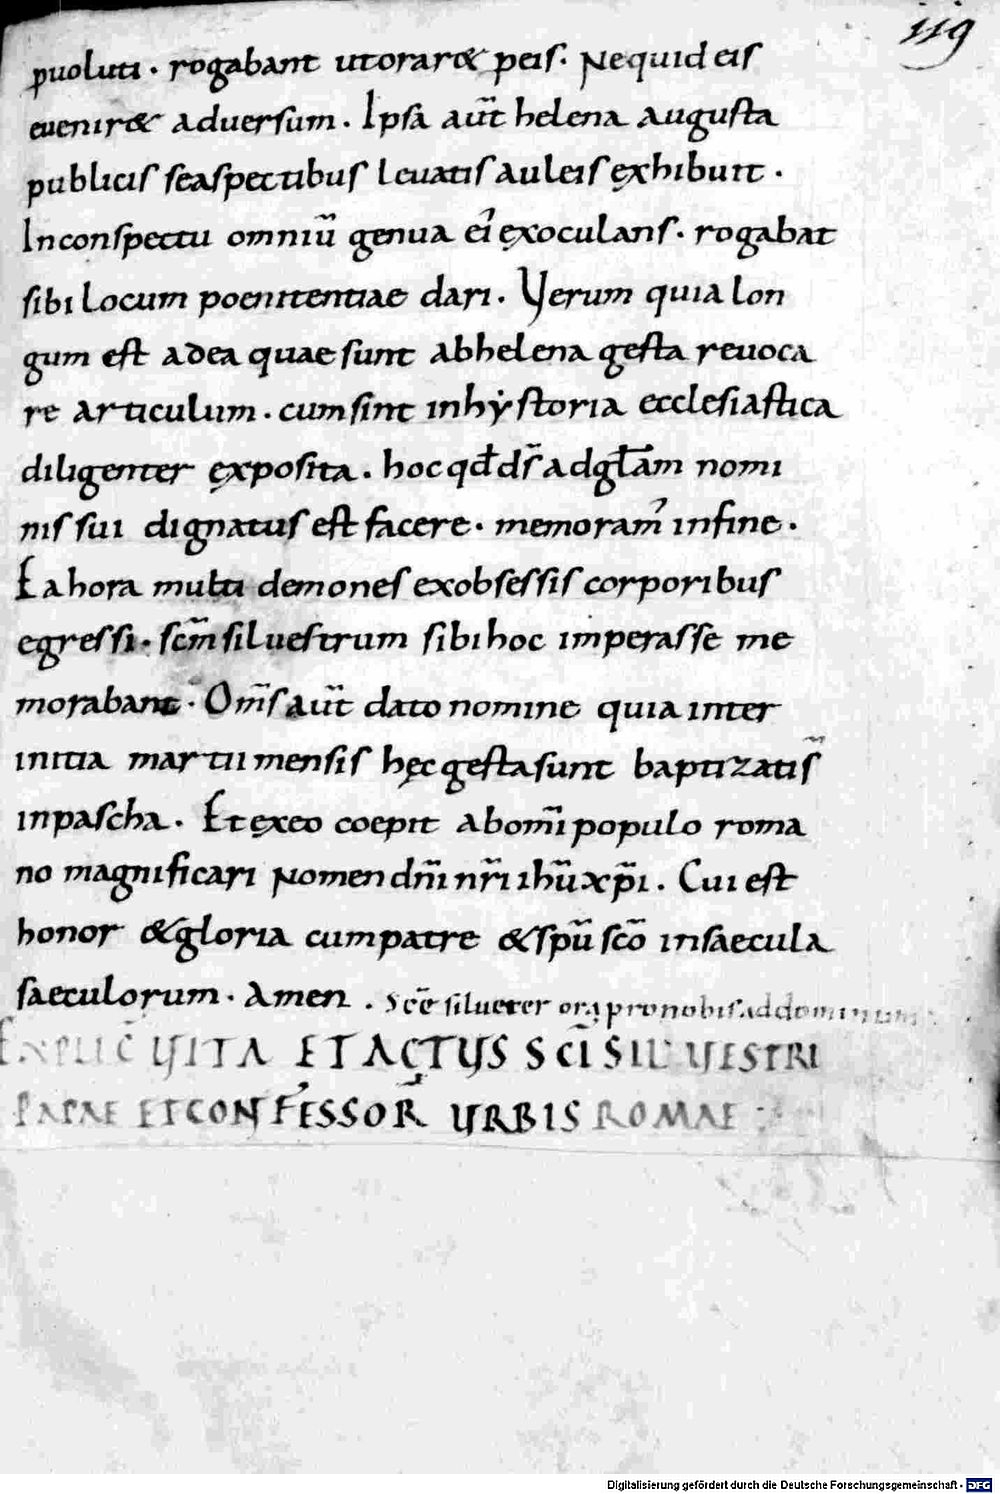 119
puoluti · rogabant utorar& peis · Nequid eis
euenir& aduersum · Ipsa aut̄ helena augusta
publicis seaspectibus leuatis auleis ęxhibuit ·
Inconspectu omniū genua ei' ęxoculans · rogabat
sibi locum poenitentiae dari · Verum quia lon
gum est adea quae sunt abhelena gesta reuoca
re articulum · cumsint inhẏstoria ecclesiastica
diligenter ęxposita · hoc qđ dr̄ adgłam nomi
nis sui dignatus est facere · memoram' infine ·
Ea hora multi demones exobsessis corporibus
egressi · scm̄ siluestrum sibi hoc imperasse me
morabant · Om̄s aut̄ dato nomine quia inter
initia martii mensis hęc gesta sunt baptizatis̄
inpascha · Et ęxeo coepit abom̄i populo roma
no magnificari Nomen dn̄i nr̄i ihū xp̄i · Cui est
honor & gloria cumpatre & spū sco̅ insaecula
saeculorum · Amen · Sce̅ silueter ora pronobis addominum
EXPLIC̄ VITA ET ACTVS SCI̅ SILVESTRI
PAPAE ET CONFESSOR̄ VRBIS ROMAE
Digitalisierung gefördert durch die Deutsche Forschungsgemeinschaft - DFG